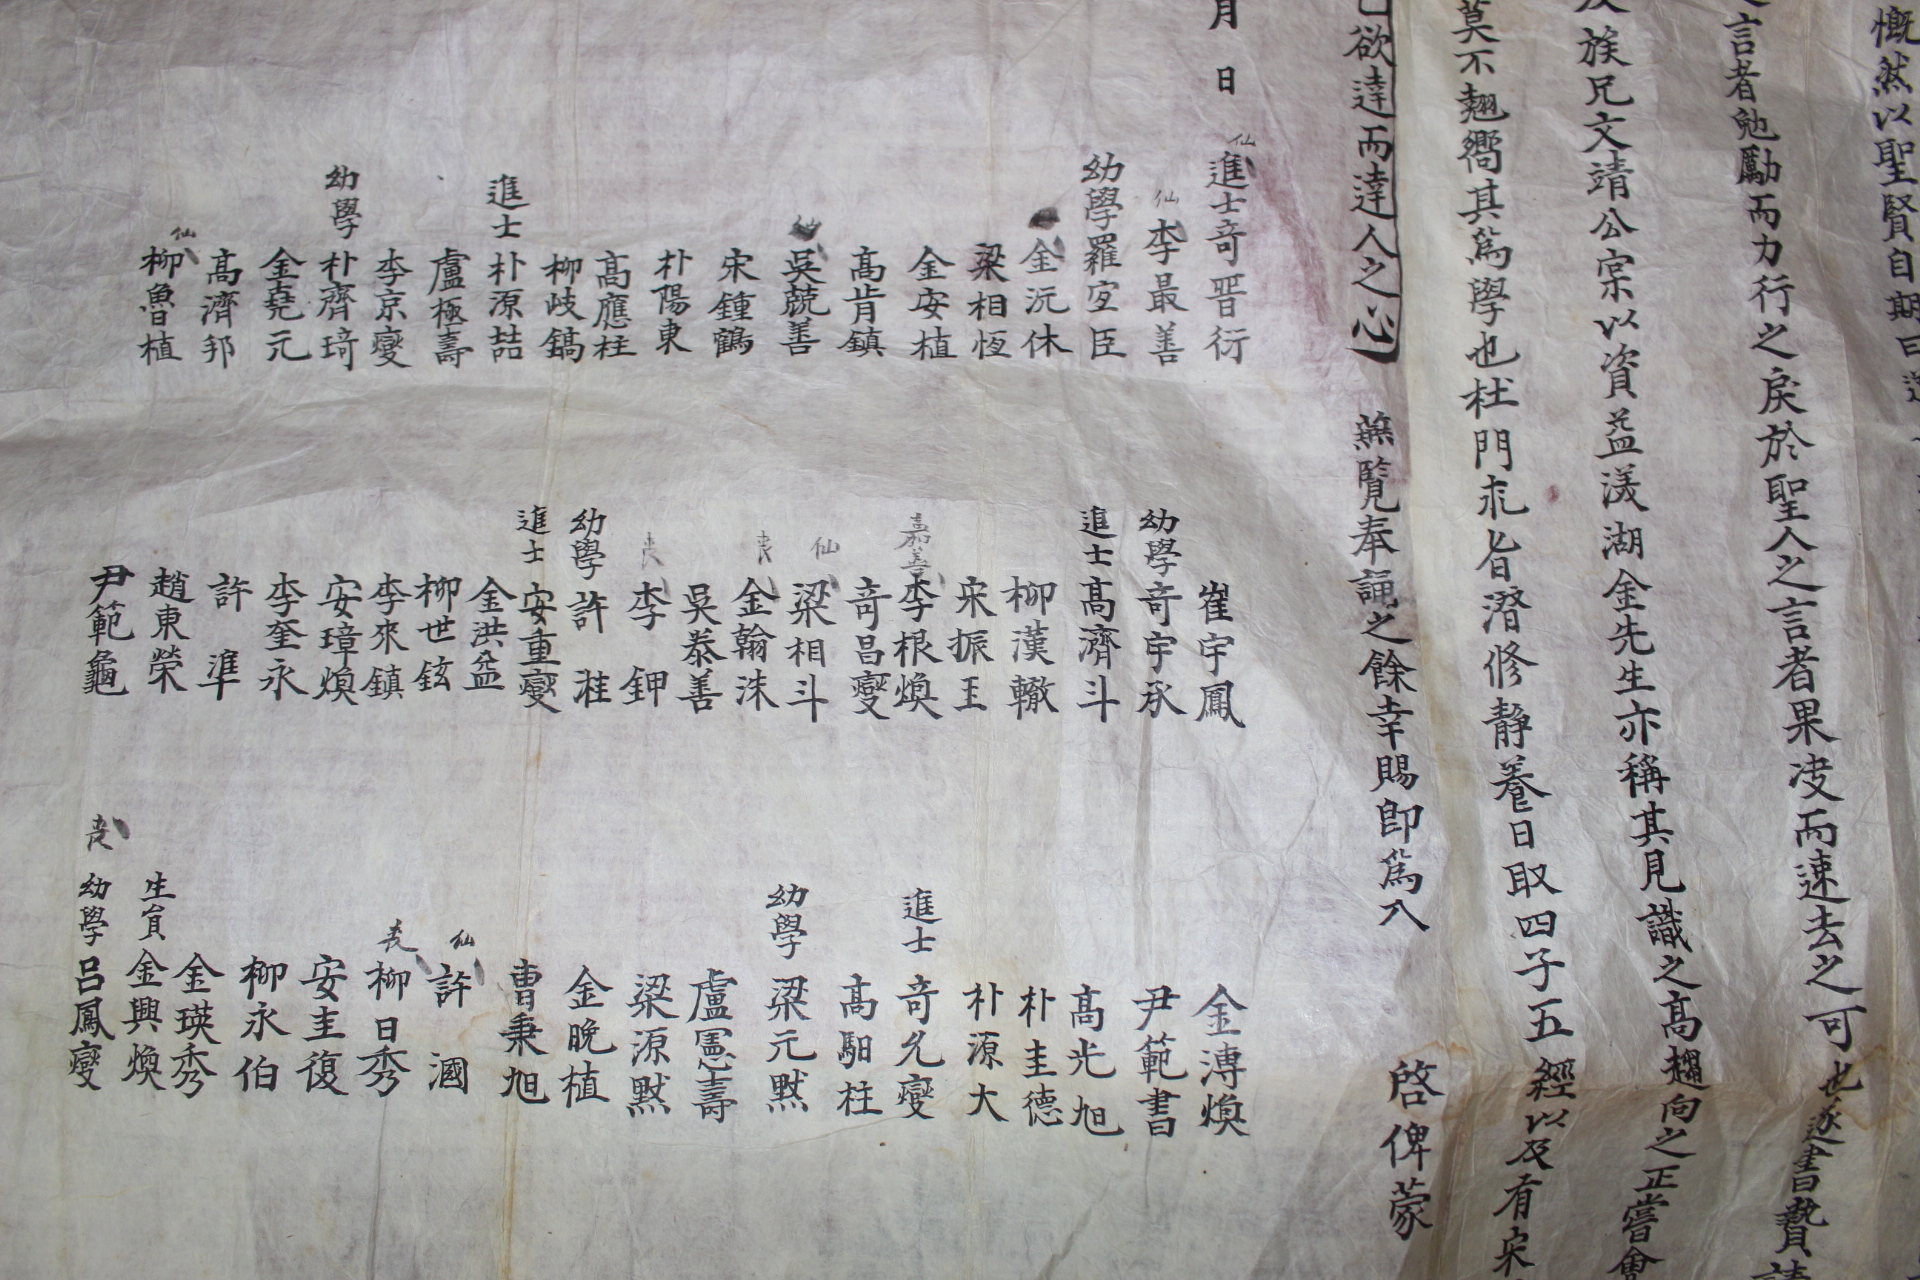 慨然以聖賢自期曰
言者勉勵而力行之戾於聖人之言者果決而速去之可也遂書贄請
族兄文靖公宗以資益渼湖金先生亦稱其見識之高趨向之正嘗會
莫不翹嚮其爲學也杜門求旨潛修靜養日取四子五經以及有宋
欲達而達人之心 無覽奉誦之餘幸賜卽爲入 啓俾蒙
月 日
仙 進士奇晋衍
仙 李最善
幼學羅宜臣
金沅休
梁相恆
金安植
高肯鎮
仙 吳兢善
宋鍾鶴
朴陽東
高應柱
柳岐鎬
進士朴源喆
盧極壽
李京燮
幼學朴齊琦
金堯元
高濟邦
仙 柳魯植
崔宇鳳
幼學奇宇承
進士高濟斗
柳漢轍
宋振玉
嘉善李根煥
奇昌燮
仙 梁相斗
丧 金翰洙
吳恭善
丧 李 鉀
幼學許 溎
進士安重燮
金洪益
柳世鉉
李來鎮
安璋煥
李奎永
許 準
趙東榮
尹範龜
金溥煥
尹範書
高光旭
朴圭德
朴源大
進士奇允燮
高駰柱
幼學梁元默
盧憲壽
梁源黙
金晩植
曺秉旭
仙 許 國
丧 柳日秀
安圭復
柳永伯
金瑛秀
生員金興煥
丧 幼學呂鳳燮